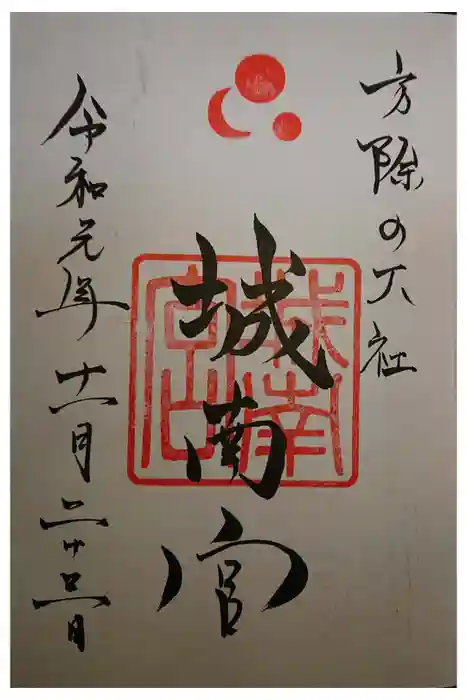 方除の大社
城南宮
城南宮
令和元年十一月二十三日